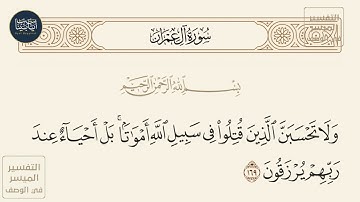 سُورَةُ آلِ عِمْرَان
بِسْمِ اللَّهِ الرَّحْمَٰنِ الرَّحِيمِ
وَلَا تَحْسَبَنَّ ٱلَّذِينَ قُتِلُوا۟ فِى سَبِيلِ ٱللَّهِ أَمْوَٰتًۢا ۚ بَلْ أَحْيَآءٌ عِندَ
رَبِّهِمْ يُرْزَقُونَ ١٦٩
التفسير
الميسر
في الوصف
التفسير
الميسر
في الوصف